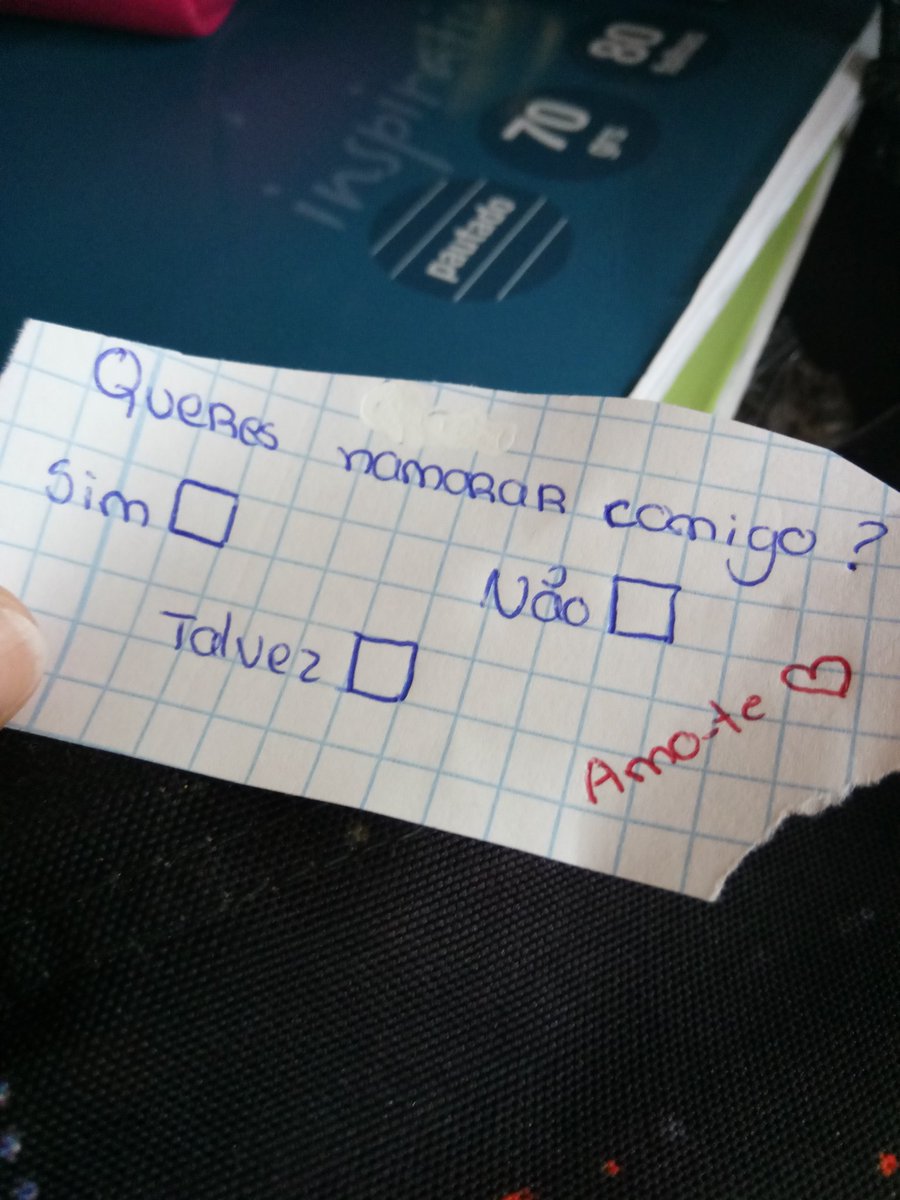 inspirati
80
70
grs.
pautado
Queres namorar comigo?
Sim
Não
Talvez
Amo-te